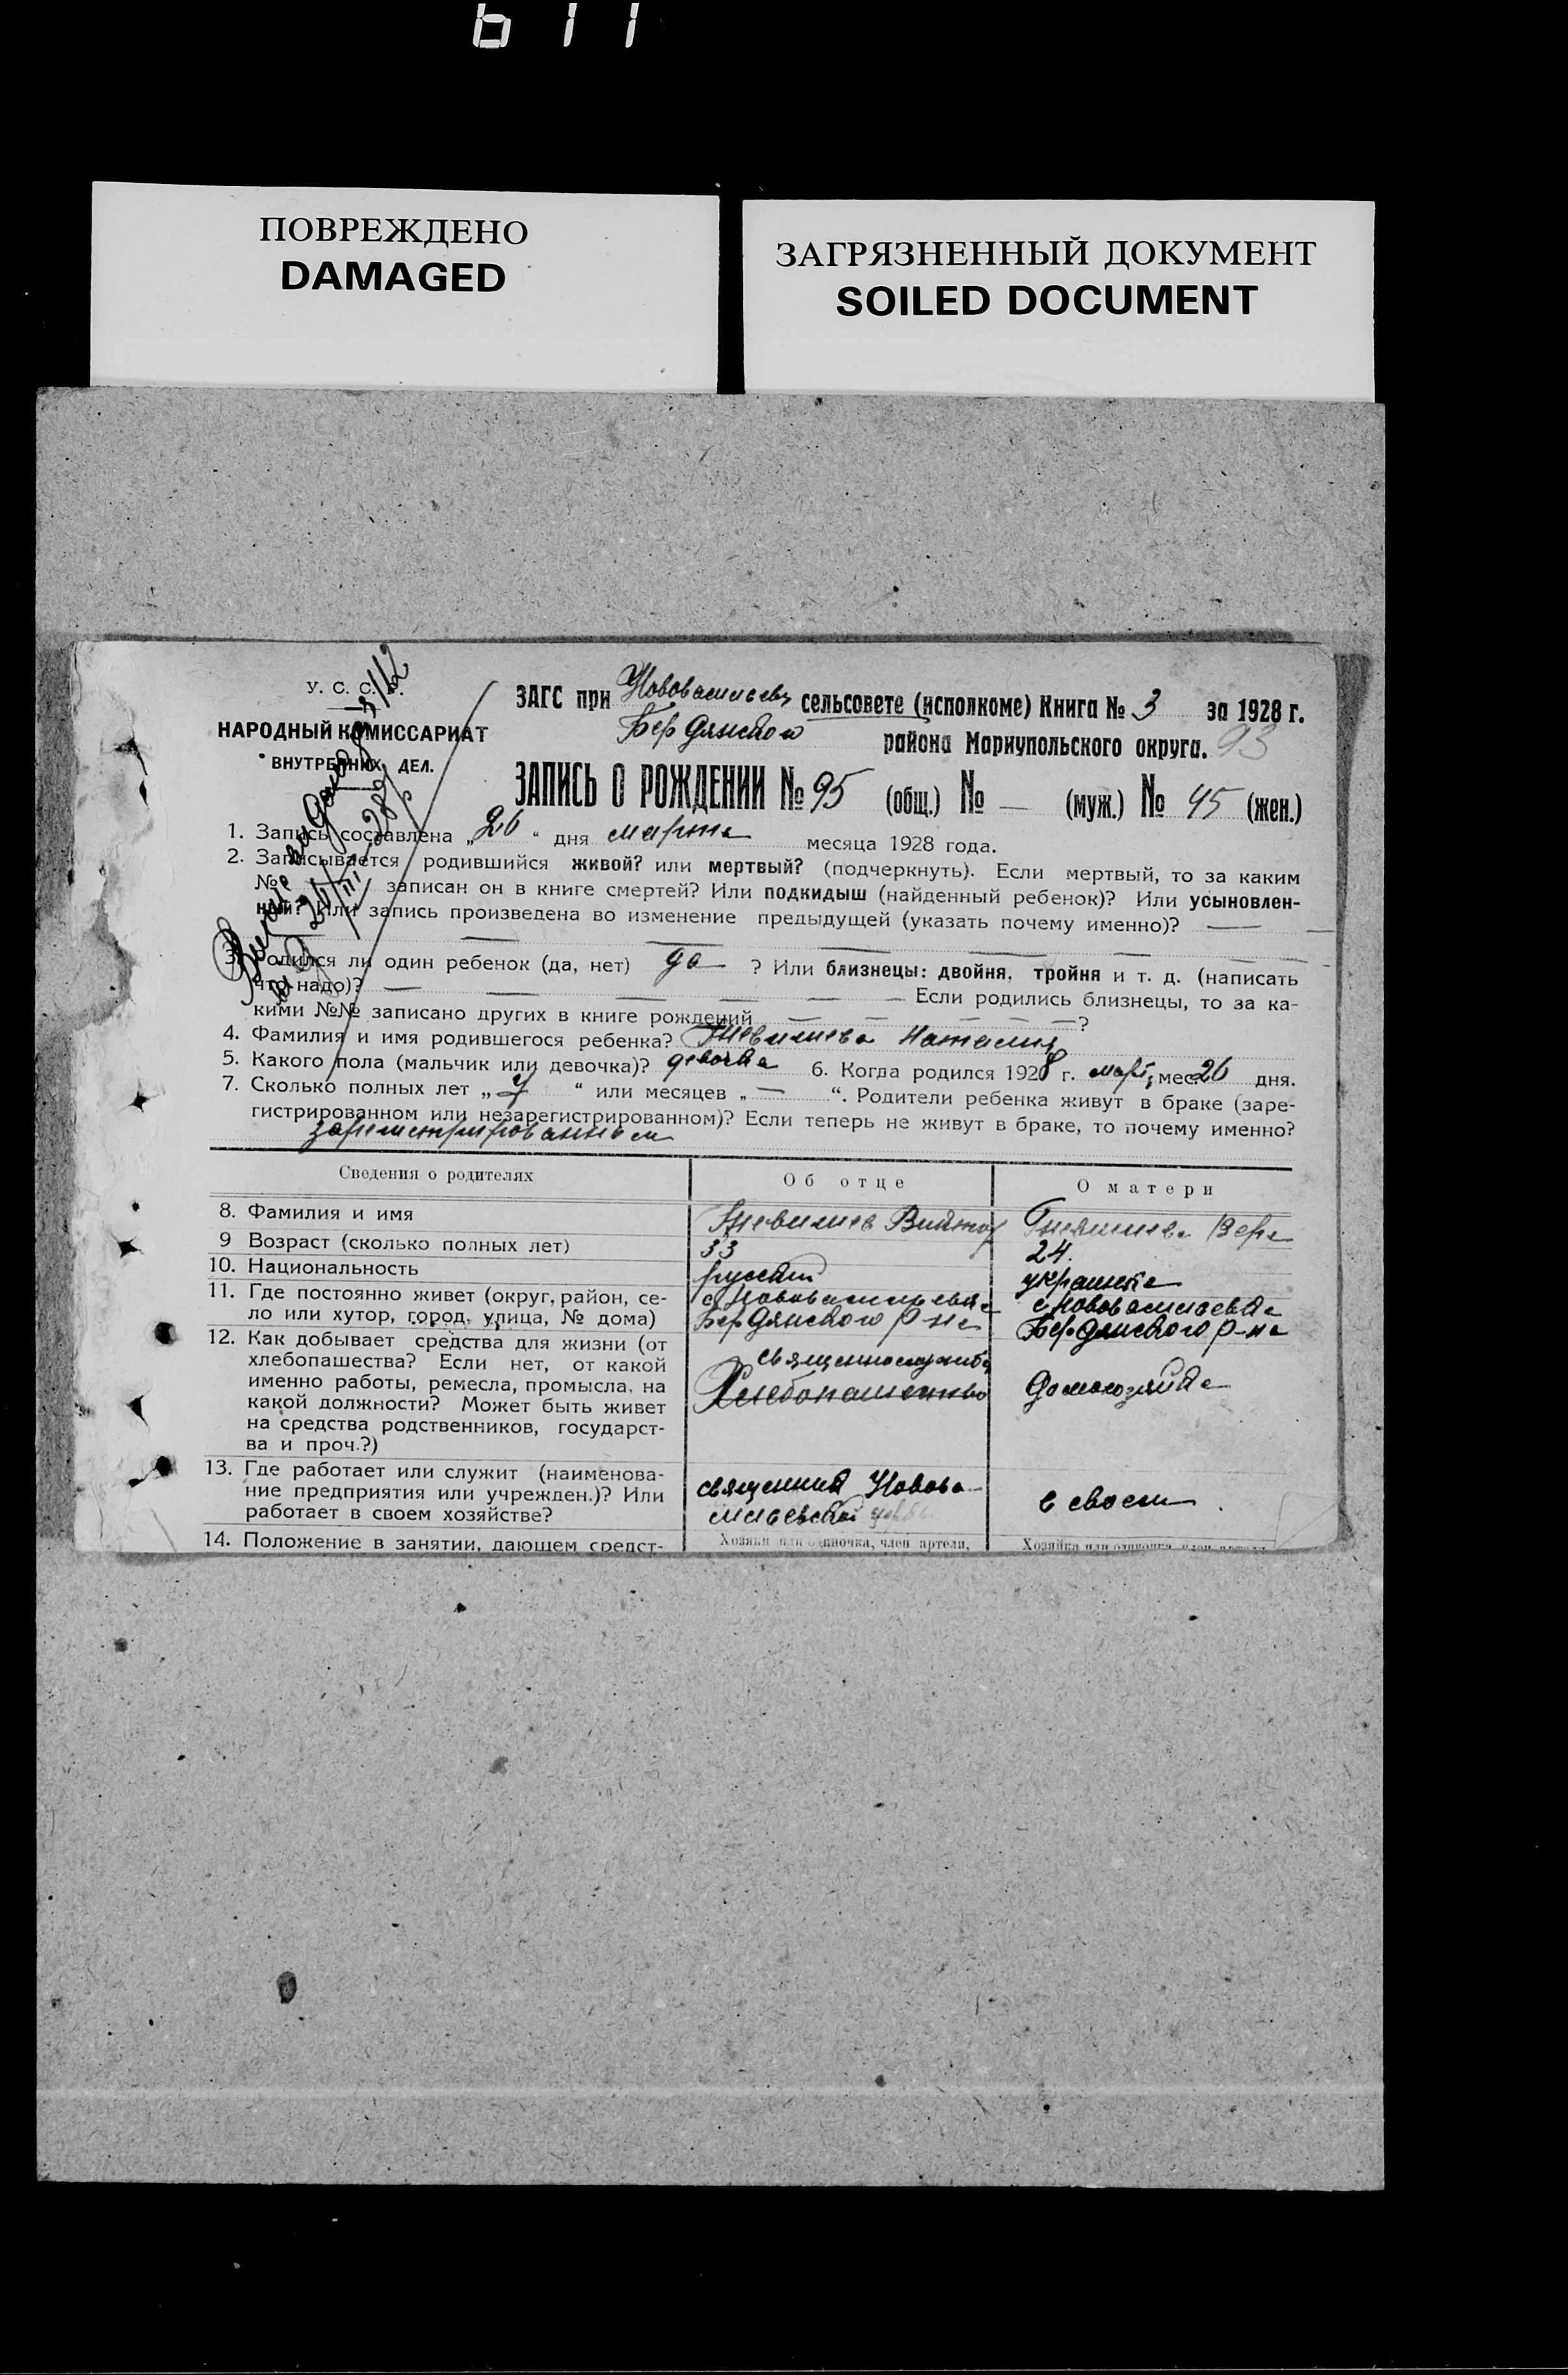 611
ПОВРЕЖДЕНО
DAMAGED
ЗАГРЯЗНЕННЫЙ ДОКУМЕНТ
SOILED DOCUMENT
У. С. С. Р.
НАРОДНЫЙ КОМИССАРИАТ
ВНУТРЕННИХ ДЕЛ.
ЗАГС при Нововасильевк сельсовете (исполкоме) Книга № 3 за 1928 г.
Бердянского района Мариупольского округа. 93
ЗАПИСЬ О РОЖДЕНИИ № 95 (общ.) № — (муж.) № 45 (жен.)
1. Запись составлена „26“ дня марта месяца 1928 года.
2. Записывается родившийся живой? или мертвый? (подчеркнуть). Если мертвый, то за каким
№ записан он в книге смертей? Или подкидыш (найденный ребенок)? Или усыновлен-
ный? Или запись произведена во изменение предыдущей (указать почему именно)? —
3. Родился ли один ребенок (да, нет) да ? Или близнецы: двойня, тройня и т. д. (написать
что надо)? — — — — — — Если родились близнецы, то за ка-
кими №№ записано других в книге рождений — — — — — ?
4. Фамилия и имя родившегося ребенка? Наталия
5. Какого пола (мальчик или девочка)? девочка 6. Когда родился 1928 г. март мес. 26 дня.
7. Сколько полных лет „ “ или месяцев „ — “. Родители ребенка живут в браке (заре-
гистрированном или незарегистрированном)? Если теперь не живут в браке, то почему именно?
зарегистрированном
Сведения о родителях Об отце О матери
8. Фамилия и имя Виктор Вера
9 Возраст (сколько полных лет) 33 24.
10. Национальность русский украинка
11. Где постоянно живет (округ, район, се- с Нововасильевка с Нововасильевка
ло или хутор, город, улица, № дома) Бердянского р-на Бердянского р-на
12. Как добывает средства для жизни (от
хлебопашества? Если нет, от какой священнослужит
именно работы, ремесла, промысла, на Хлебопашество домохозяйка
какой должности? Может быть живет
на средства родственников, государст-
ва и проч.?)
13. Где работает или служит (наименова- священник Новова-
ние предприятия или учрежден.)? Или сильевской в своем
работает в своем хозяйстве?
14. Положение в занятии, дающем средст- Хозяин или одиночка, член артели, Хозяйка или одиночка, член артели